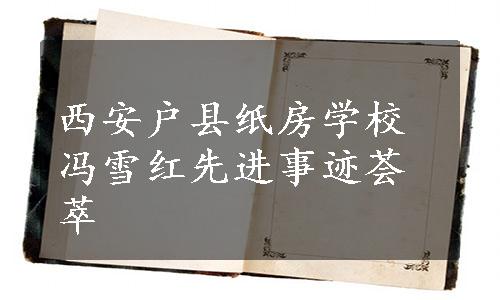 西安户县纸房学校
冯雪红先进事迹荟
萃